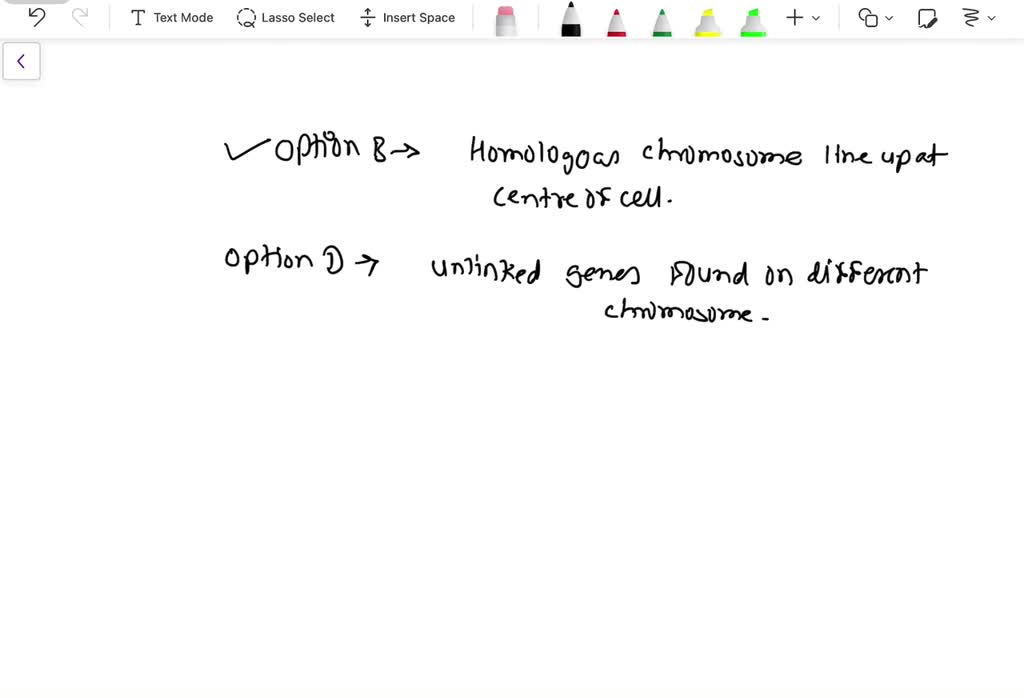 Text Mode Lasso Select Insert Space
✓ option B → Homologous chromosome line up at
centre of cell.
option D → unlinked genes found on different
chromosome.